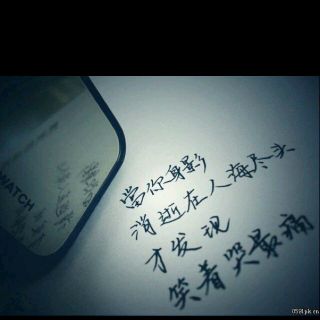 當你身影
消逝在人海尽头
才发现
笑着哭最痛
WATCH
0591pk.cn